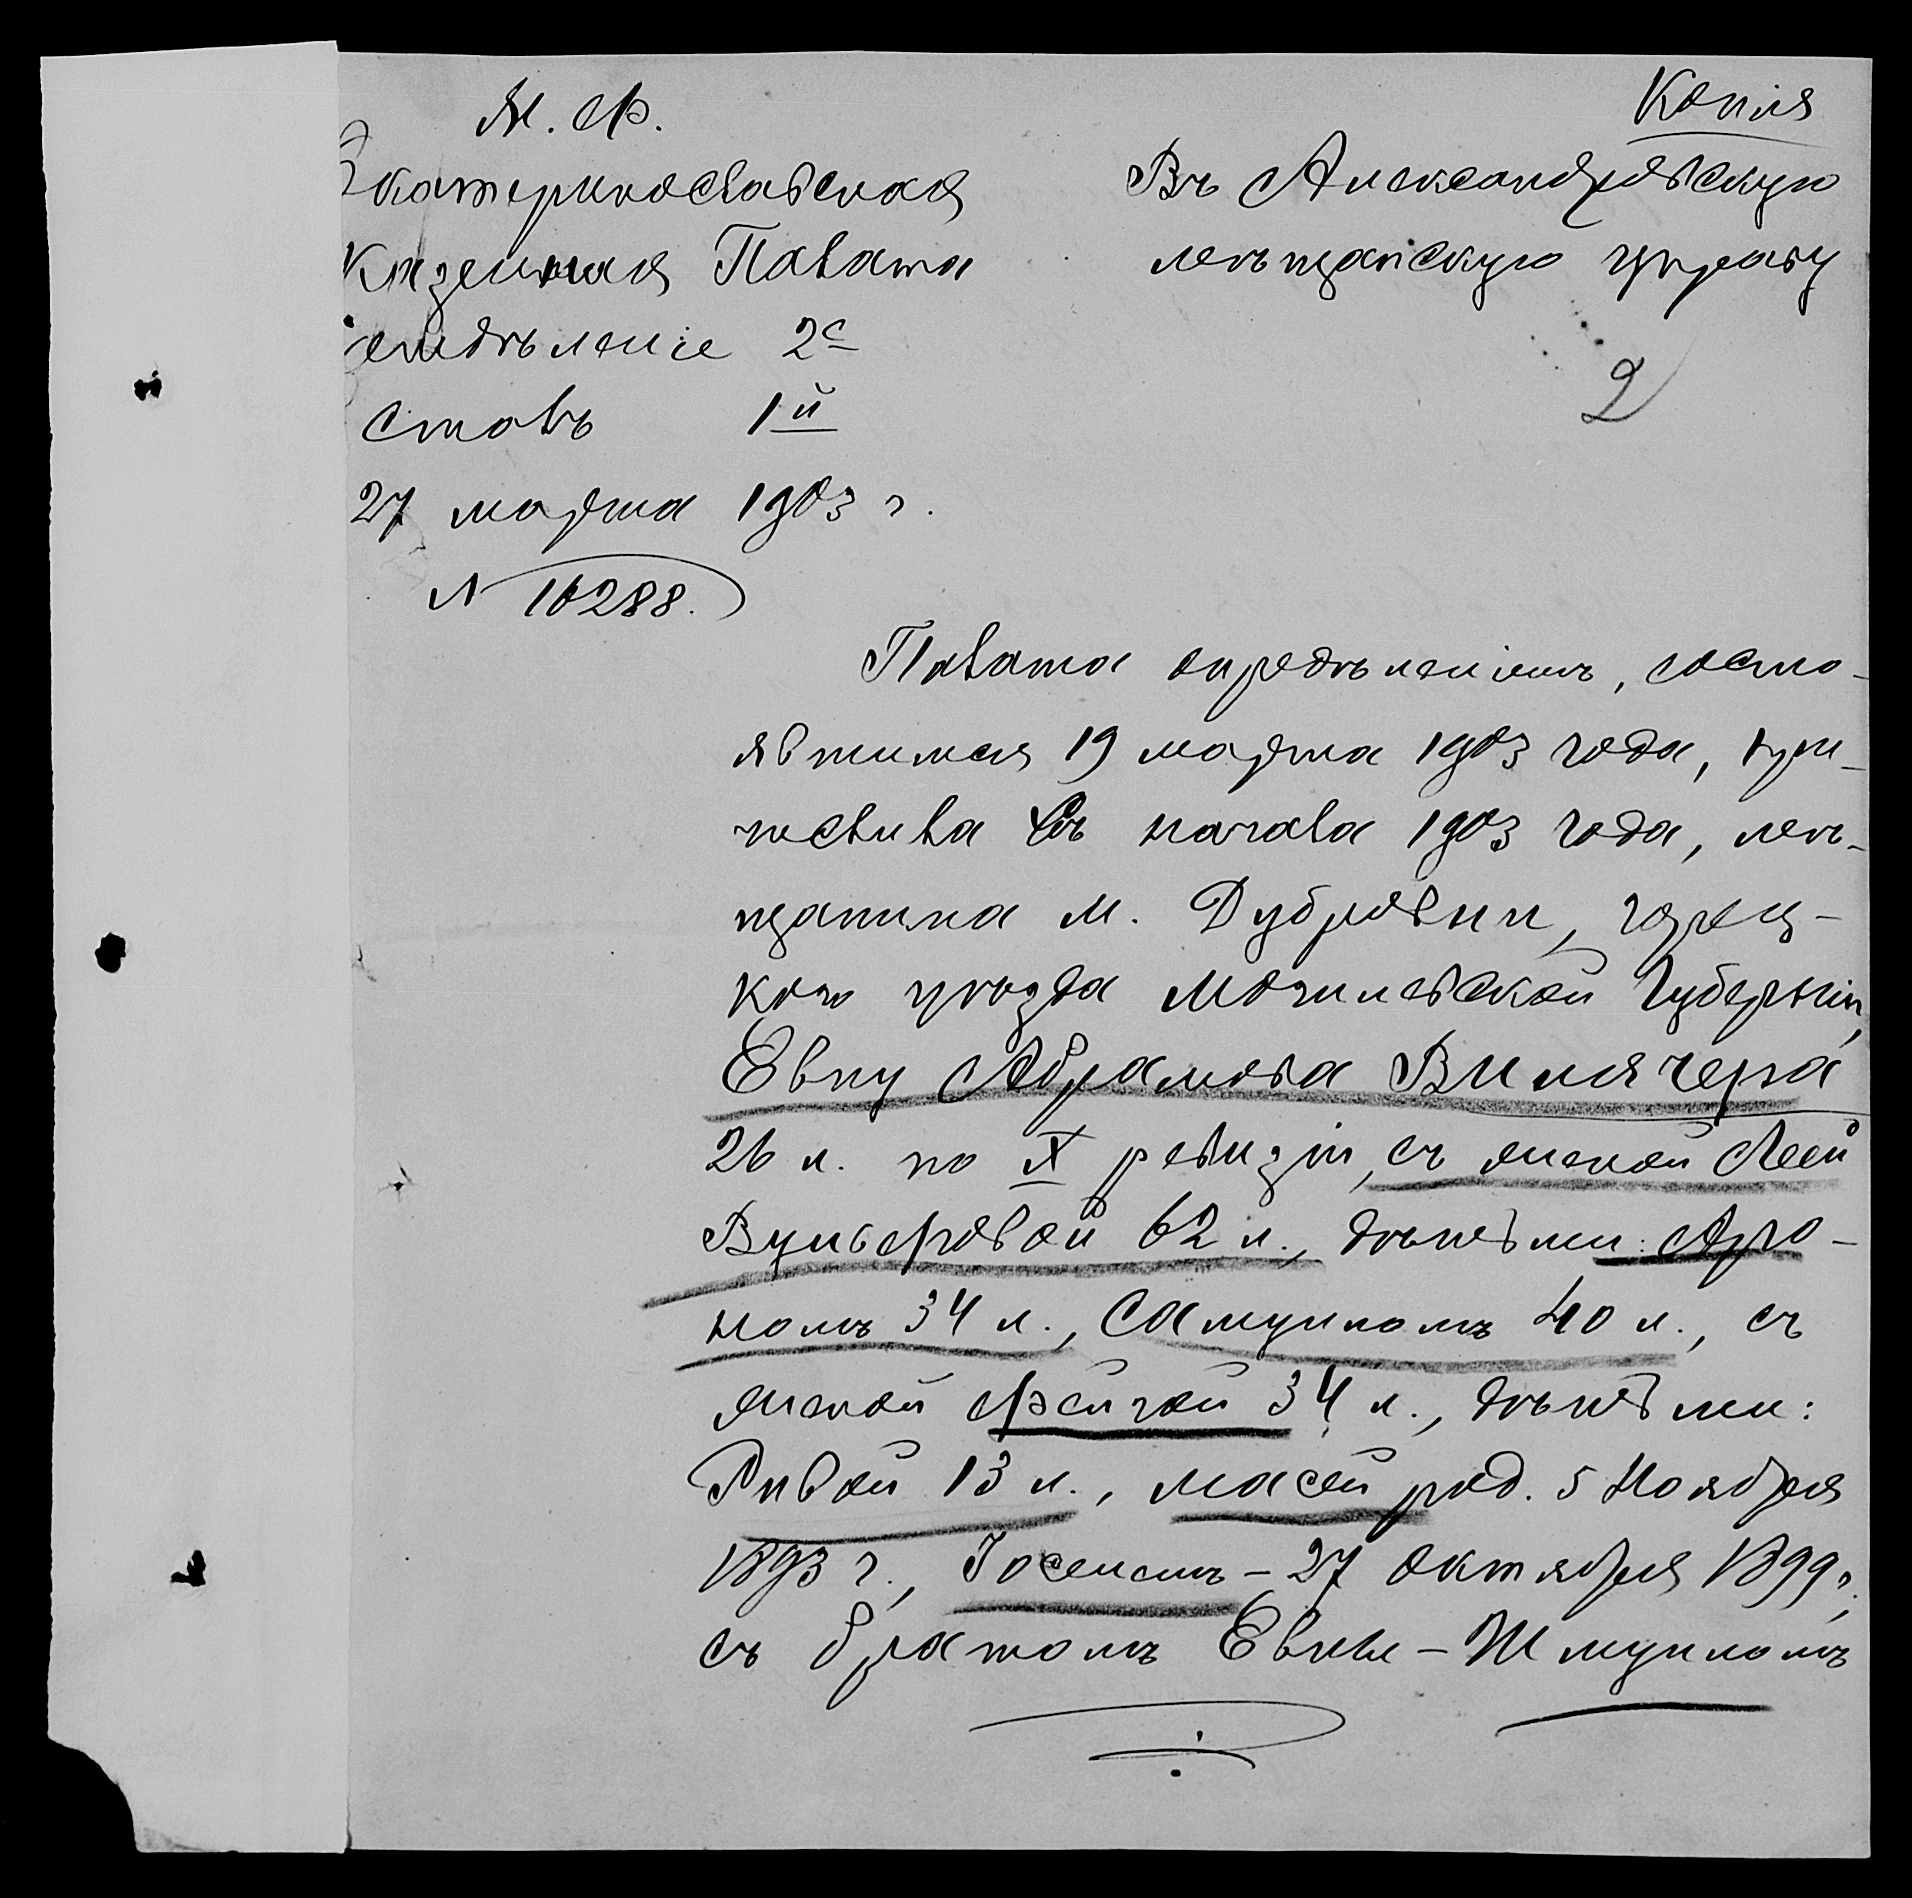 М. Ф.
Екатеринославская
Казенная Палата
отдѣленіе 2е
столъ 1й
27 марта 1903 г.
N 16288.
Копія
Въ Александровскую
мѣщанскую управу
2
Палата опредѣленіемъ, состо-
явшимся 19 марта 1903 года, при-
числила съ начала 1903 года, мѣ-
щанина м. Дубровны, горец-
каго уѣзда Могилевской губерніи,
Евну Абрамова Вилячера
26 л. по X ревизіи, съ женой Леей
Вульфовой 62 л., дѣтьми: Аро-
номъ 34 л., Самуиломъ 40 л., съ
женой Фейгой 34 л., дѣтьми:
Ривой 13 л., Масей род. 5 Ноября
1893 г., Іоселемъ - 27 октября 1899 г.,
съ братомъ Евны - Шмуиломъ